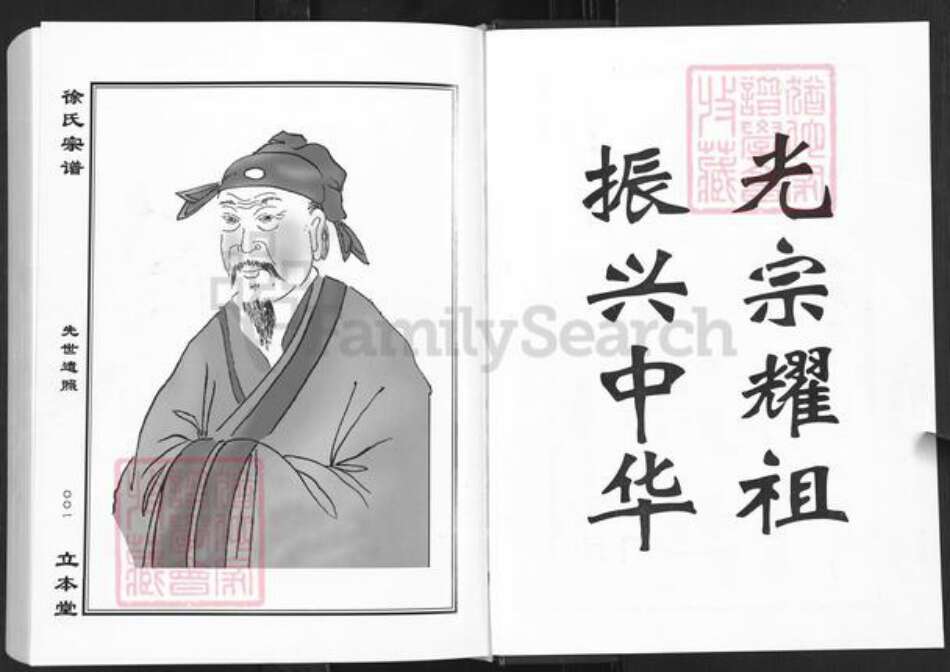 光宗耀祖
振兴中华
徐氏宗谱
先世遗照
〇〇一
立本堂
FamilySearch